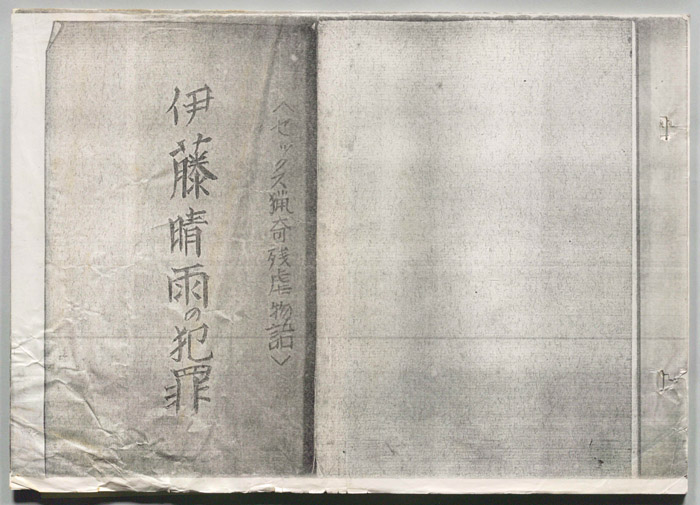 〈セックス猟奇残虐物語〉
伊藤晴雨の犯罪